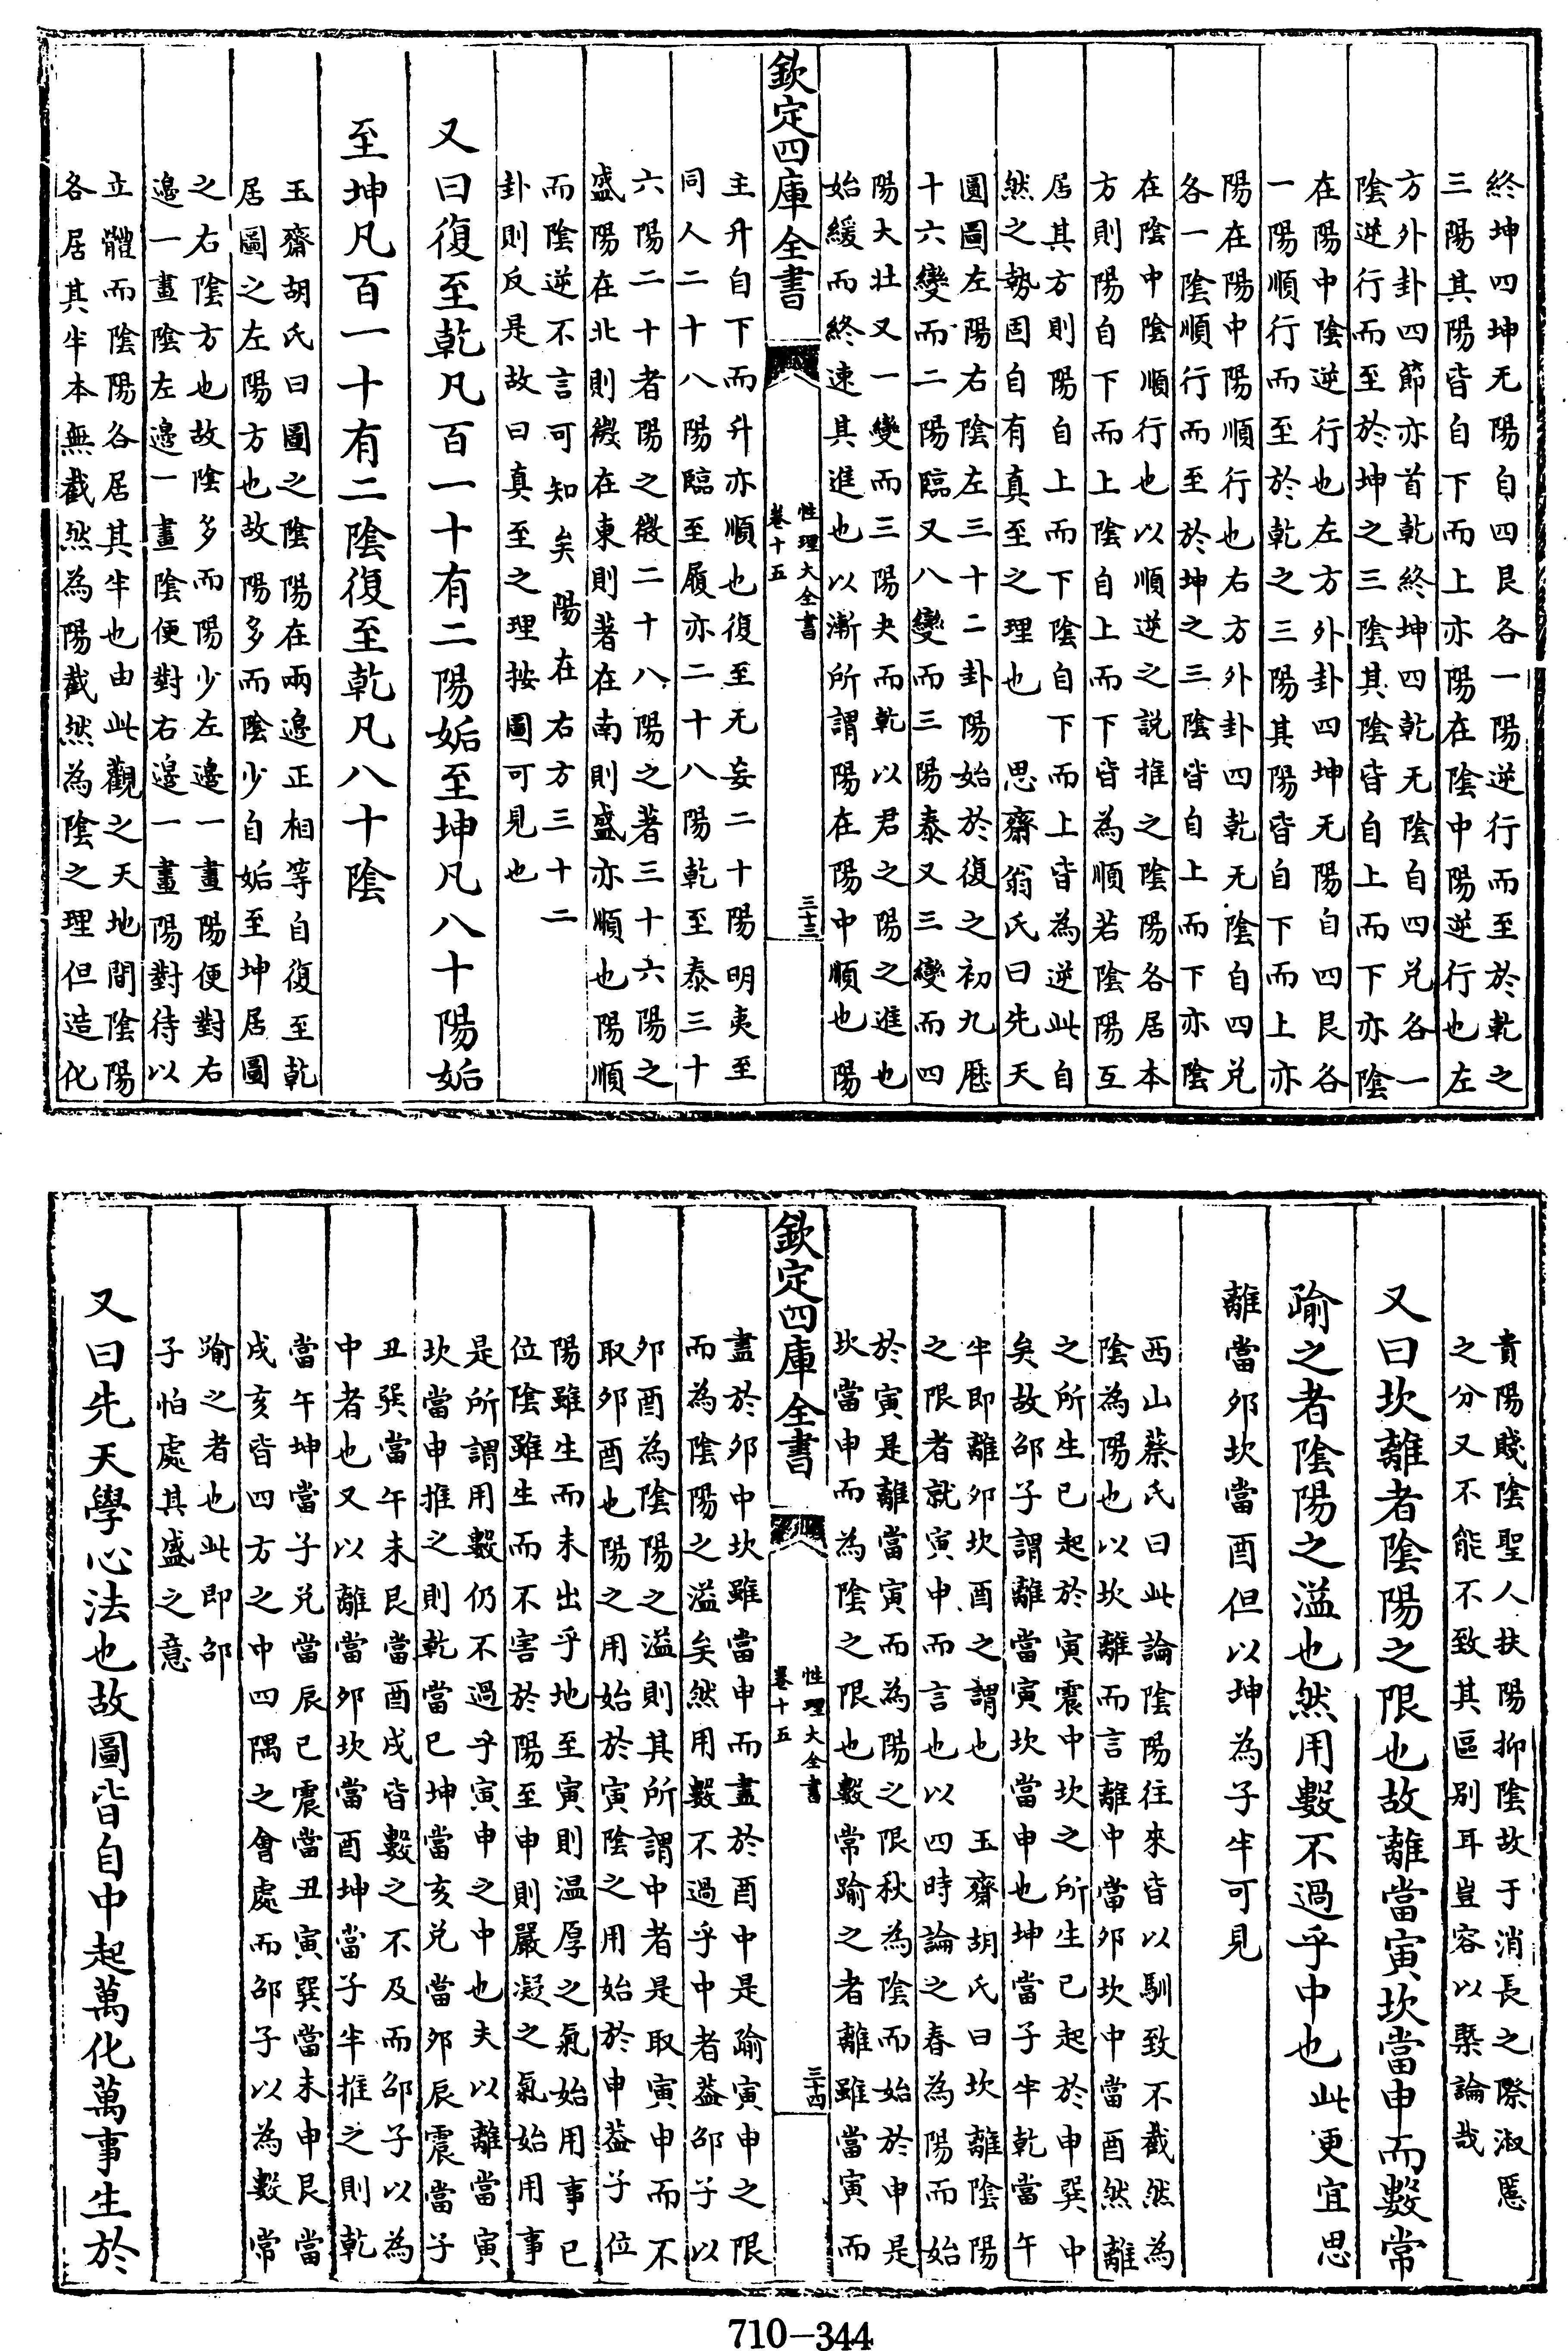 終坤四坤无陽自四艮各一陽逆行而至於乾之
三陽其陽皆自下而上亦陽在陰中陽逆行也左
方外卦四節亦首乾終坤四乾无陰自四兌各一
陰逆行而至於坤之三陰其陰皆自上而下亦陰
在陽中陰逆行也左方外卦四坤无陽自四艮各
一陽順行而至於乾之三陽其陽皆自下而上亦
陽在陽中陽順行也右方外卦四乾无陰自四兌
各一陰順行而至於坤之三陰皆自上而下亦陰
在陰中陰順行也以順逆之説推之陰陽各居本
方則陽自下而上陰自上而下皆為順若陰陽互
居其方則陽自上而下陰自下而上皆為逆此自
然之勢固自有真至之理也 思齋翁氏曰先天
圓圖左陽右陰左三十二卦陽始於復之初九歷
十六變而二陽臨又八變而三陽泰又三變而四
陽大壯又一變而三陽夬而乾以君之陽之進也
始緩而終速其進也以漸所謂陽在陽中順也陽
欽定四庫全書
性理大全書
卷十五
三十三
主升自下而升亦順也復至无妄二十陽明夷至
同人二十八陽臨至履亦二十八陽乾至泰三十
六陽二十者陽之微二十八陽之著三十六陽之
盛陽在北則微在東則著在南則盛亦順也陽順
而陰逆不言可知矣陽在右方三十二
卦則反是故曰真至之理按圖可見也
又曰復至乾凡百一十有二陽姤至坤凡八十陽姤
至坤凡百一十有二陰復至乾凡八十陰
玉齋胡氏曰圖之陰陽在兩邊正相等自復至乾
居圖之左陽方也故陽多而陰少自姤至坤居圖
之右陰方也故陰多而陽少左邊一畫陽便對右
邊一畫陰左邊一畫陰便對右邊一畫陽對待以
立體而陰陽各居其半也由此觀之天地間陰陽
各居其半本無截然為陽截然為陰之理但造化
貴陽賤陰聖人扶陽抑陰故于消長之際淑慝
之分又不能不致其區别耳豈容以槩論哉
又曰坎離者陰陽之限也故離當寅坎當申而數常
踰之者陰陽之溢也然用數不過乎中也此更宜思
離當卯坎當酉但以坤為子半可見
西山蔡氏曰此論陰陽往來皆以馴致不截然為
陰為陽也以坎離而言離中當卯坎中當酉然離
之所生已起於寅震中坎之所生已起於申巽中
矣故邵子謂離當寅坎當申也坤當子半乾當午
半即離卯坎酉之謂也 玉齋胡氏曰坎離陰陽
之限者就寅申而言也以四時論之春為陽而始
於寅是離當寅而為陽之限秋為陰而始於申是
坎當申而為陰之限也數常踰之者離雖當寅而
欽定四庫全書
性理大全書
卷十五
三十四
盡於卯中坎雖當申而盡於酉中是踰寅申之限
而為陰陽之溢矣然用數不過乎中者葢邵子以
卯酉為陰陽之溢則其所謂中者是取寅申而不
取卯酉也陽之用始於寅陰之用始於申葢子位
陽雖生而未出乎地至寅則温厚之氣始用事已
位陰雖生而不害於陽至申則嚴凝之氣始用事
是所謂用數仍不過乎寅申之中也夫以離當寅
坎當申推之則乾當已坤當亥兌當卯辰震當子
丑巽當午未艮當酉戌皆數之不及而邵子以為
中者也又以離當卯坎當酉坤當子半推之則乾
當午坤當子兌當辰已震當丑寅巽當未申艮當
戌亥皆四方之中四隅之會處而邵子以為數常
踰之者也此即邵
子怕處其盛之意
又曰先天學心法也故圖皆自中起萬化萬事生於
710-344